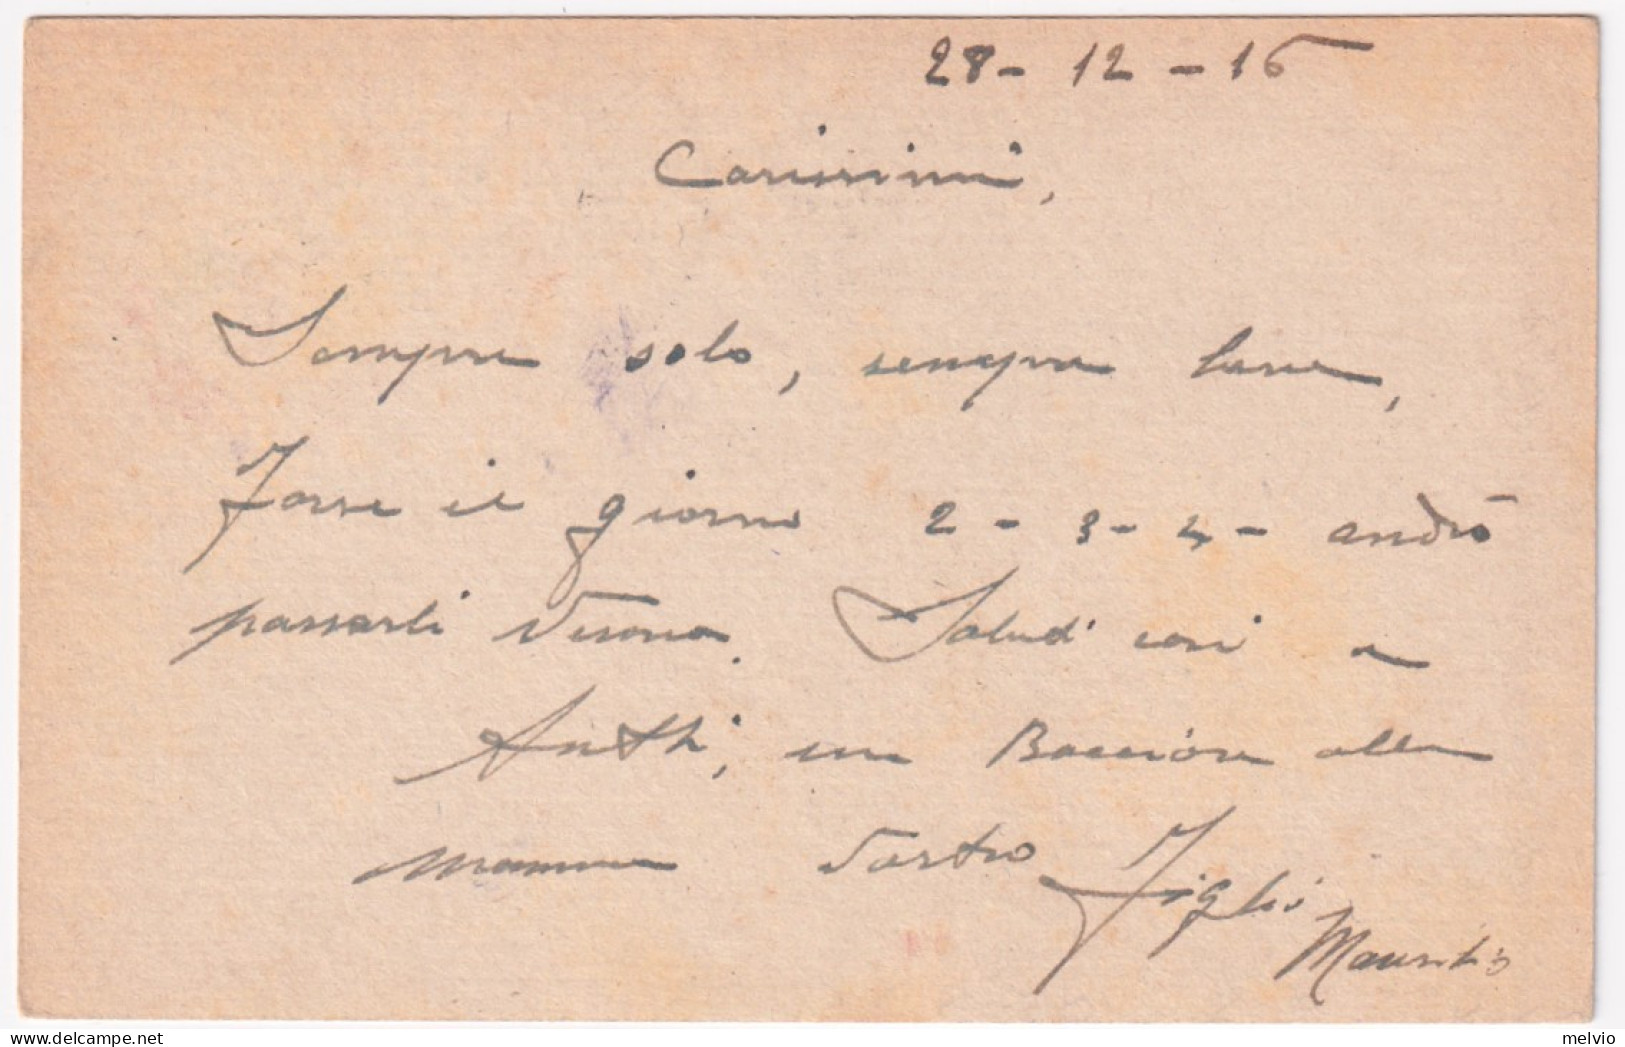 28 - 12 - 16
Carissimi,
Sempre solo, sempre bene,
Forse il giorno 2 - 3 - 4 - andrò
passarli Verona. Saludi cari a
tutti, un Baccione alla
mamma Vostro Figlio
Maurizio
delcampe.net
melvio